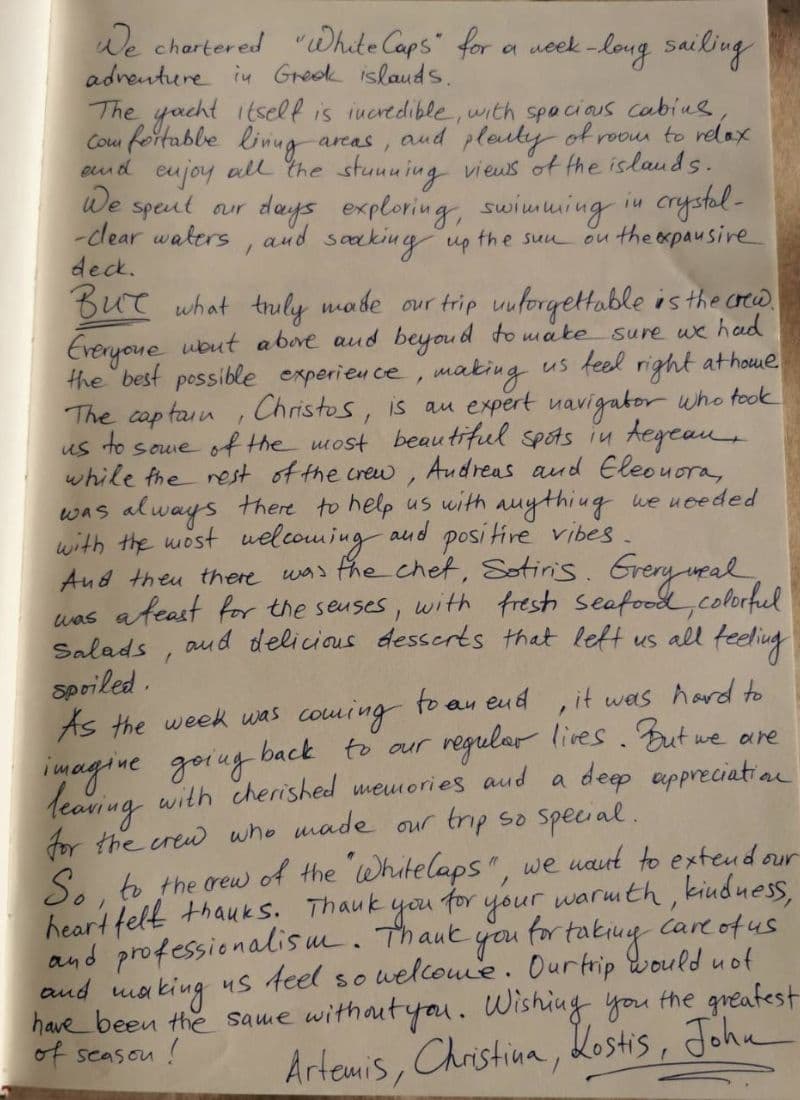 We chartered "WhiteCaps" for a week-long sailing
adventure in Greek islands.
The yacht itself is incredible, with spacious cabins,
comfortable living areas, and plenty of room to relax
and enjoy all the stunning views of the islands.
We spent our days exploring, swimming in crystal-
-clear waters, and soaking up the sun on the expansive
deck.
BUT what truly made our trip unforgettable is the crew.
Everyone went above and beyond to make sure we had
the best possible experience, making us feel right at home.
The captain, Christos, is an expert navigator who took
us to some of the most beautiful spots in Aegean,
while the rest of the crew, Andreas and Eleonora,
was always there to help us with anything we needed
with the most welcoming and positive vibes.
And then there was the chef, Sotiris. Every meal
was a feast for the senses, with fresh seafood, colorful
salads, and delicious desserts that left us all feeling
spoiled.
As the week was coming to an end, it was hard to
imagine going back to our regular lives. But we are
leaving with cherished memories and a deep appreciation
for the crew who made our trip so special.
So, to the crew of the "WhiteCaps", we want to extend our
heartfelt thanks. Thank you for your warmth, kindness,
and professionalism. Thank you for taking care of us
and making us feel so welcome. Our trip would not
have been the same without you. Wishing you the greatest
of season!
Artemis, Christina, Kostis, John